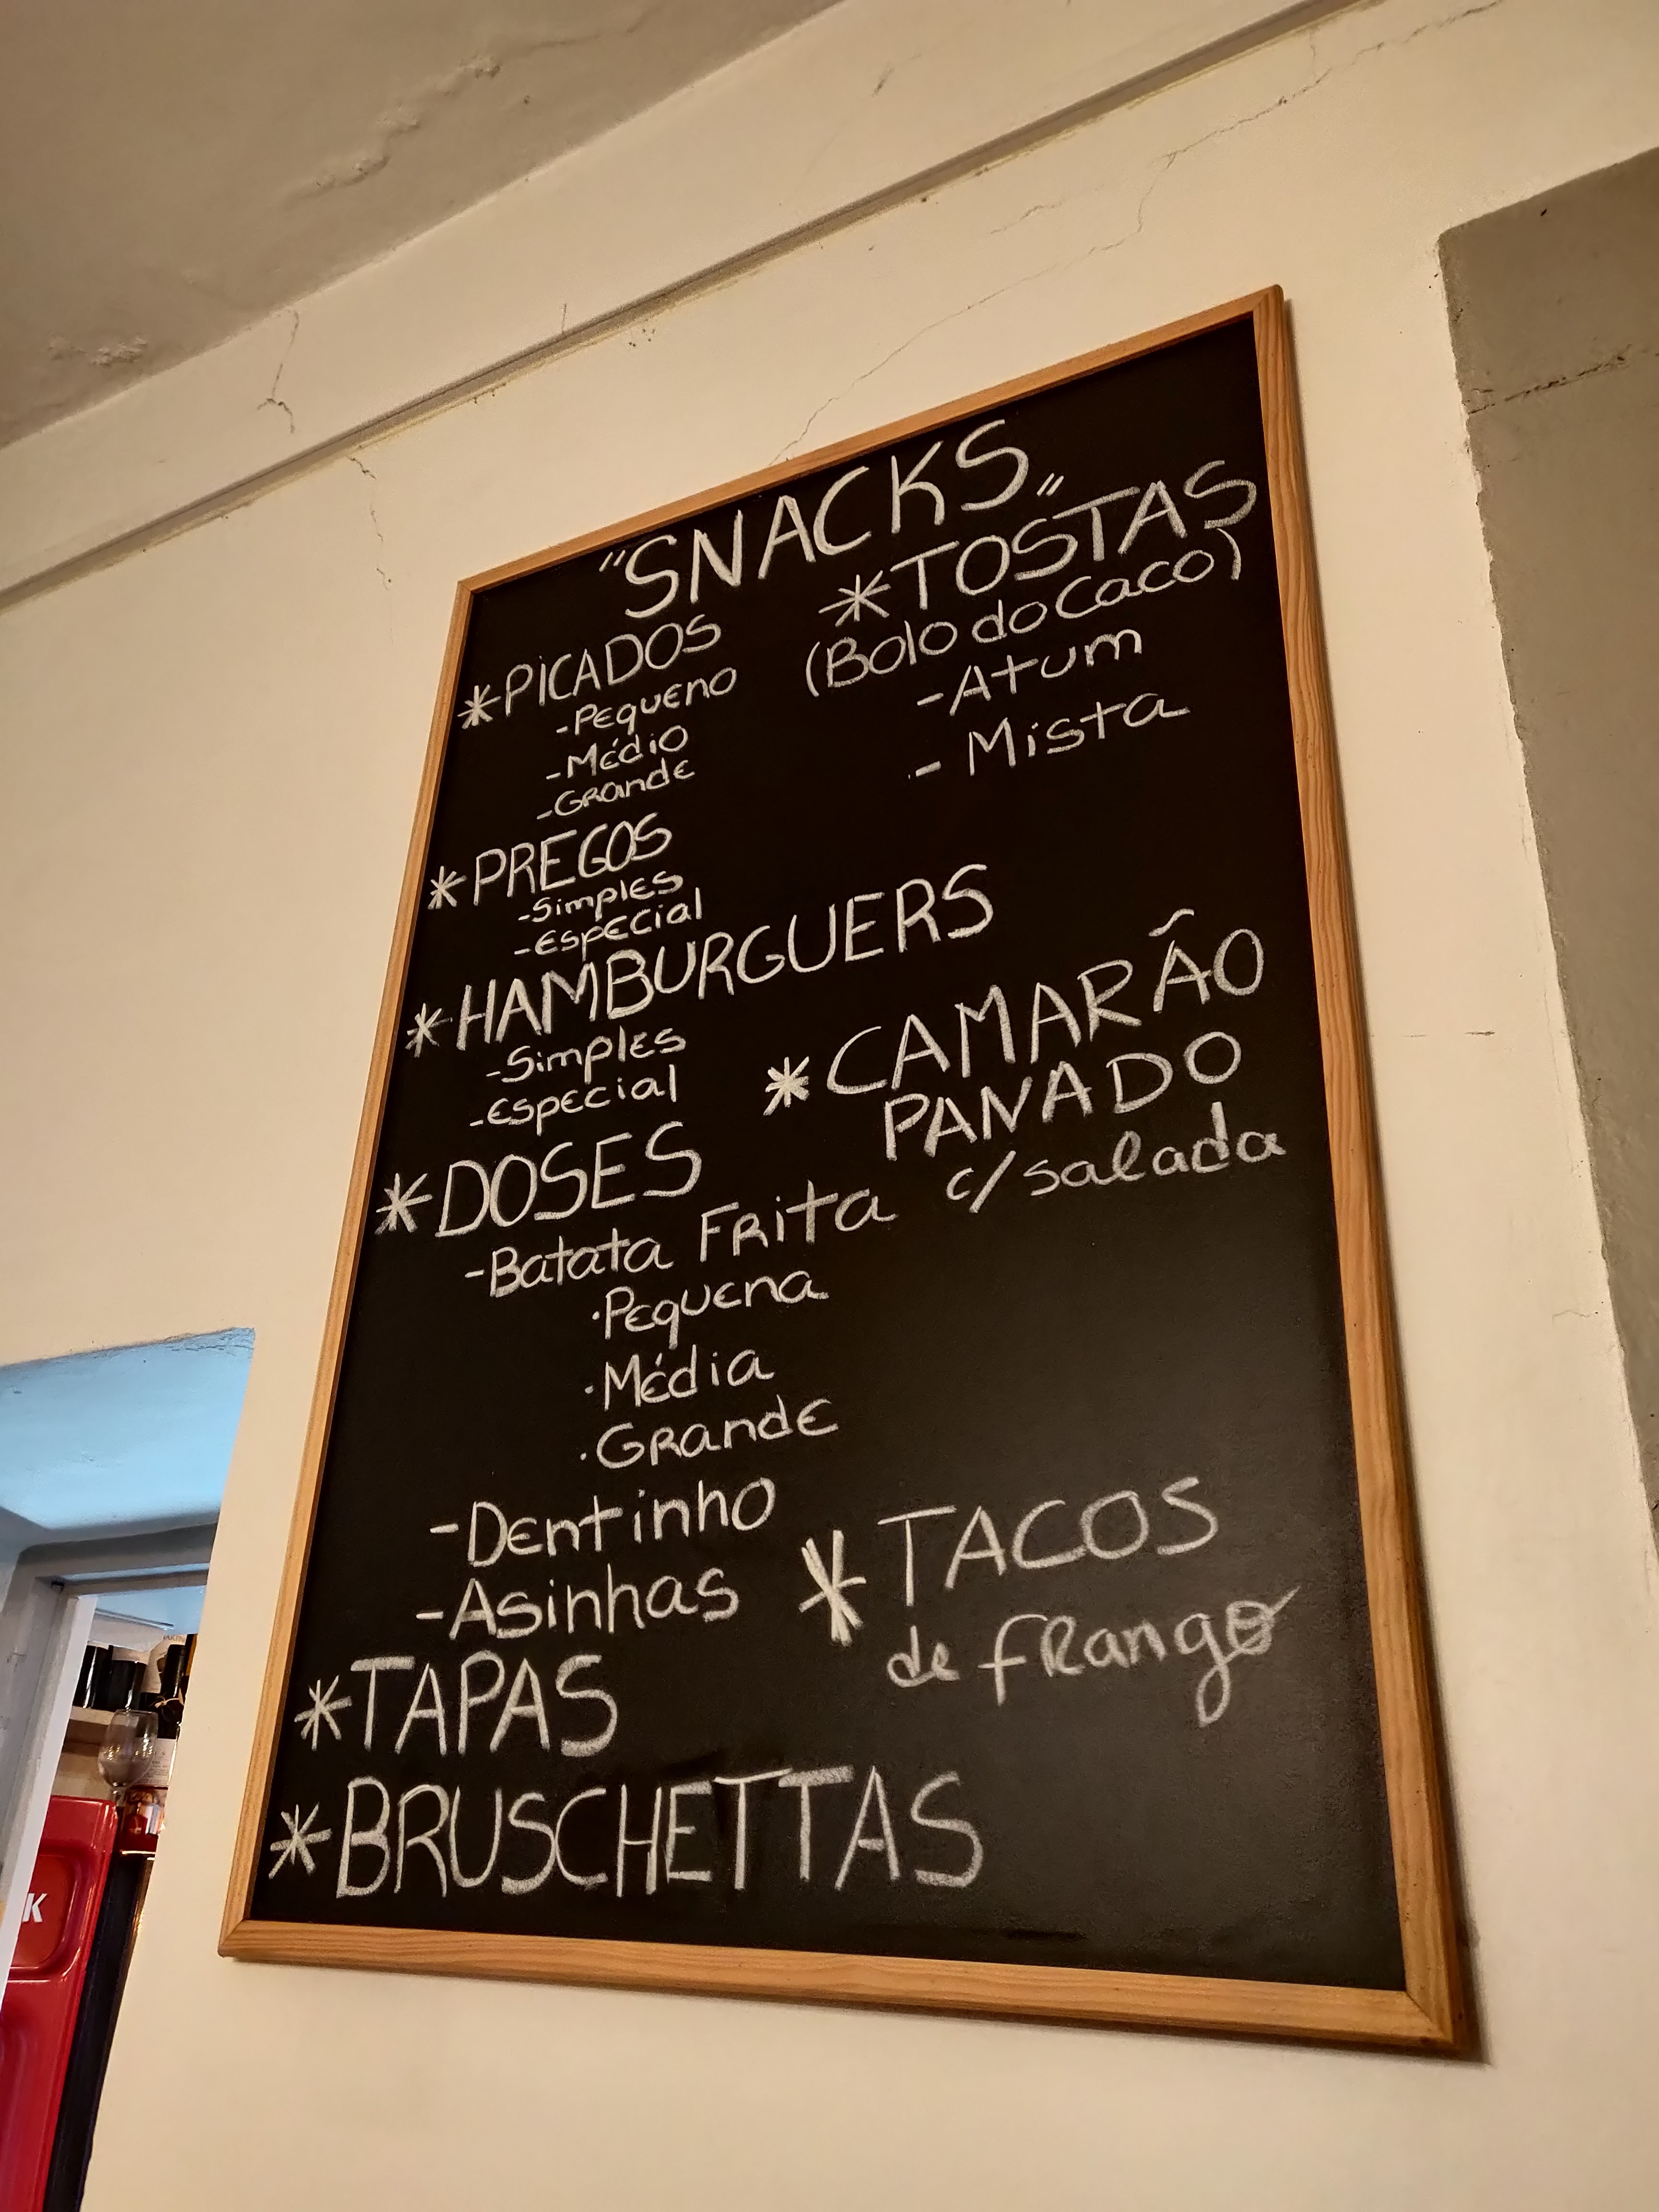 "SNACKS"
*PICADOS
-Pequeno
-Médio
-Grande
*PREGOS
-Simples
-Especial
*HAMBURGUERS
-Simples
-Especial
*DOSES
-Batata Frita
·Pequena
·Média
·Grande
-Dentinho
-Asinhas
*TAPAS
*BRUSCHETTAS
*TOSTAS
(Bolo do Caco)
-Atum
- Mista
*CAMARÃO
PANADO
c/salada
*TACOS
de frango
K